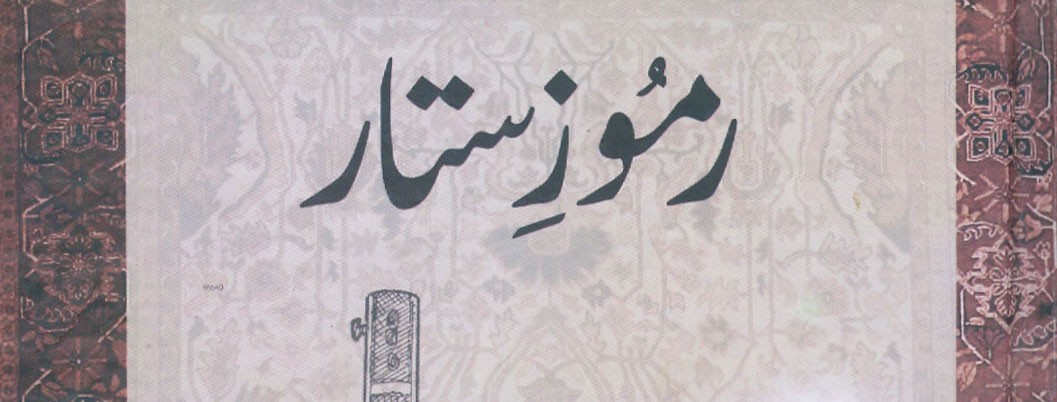 رمُوزِ ستار